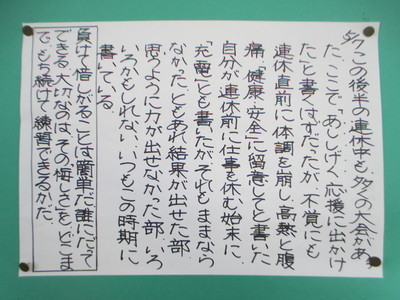 5/7この後半の連休中も多くの大会があっ
た。ここで「あししげく応援に出かけ
た」と書くはずだったが、不覚にも
連休直前に体調を崩し、高熱と腹
痛。「健康、安全に留意して」と書いた
自分が連休前に仕事を休む始末に。
「充電」とも書いたがそれもままなら
なかった。ともあれ結果が出せた部、
思うように力が出せなかった部、いろ
いろかもしれない。いつもこの時期に
書いている。
負けて悔しがることは簡単だ。誰にだって
できる。大切なのはその悔しさをどこま
でもち続けて練習できるかだ。